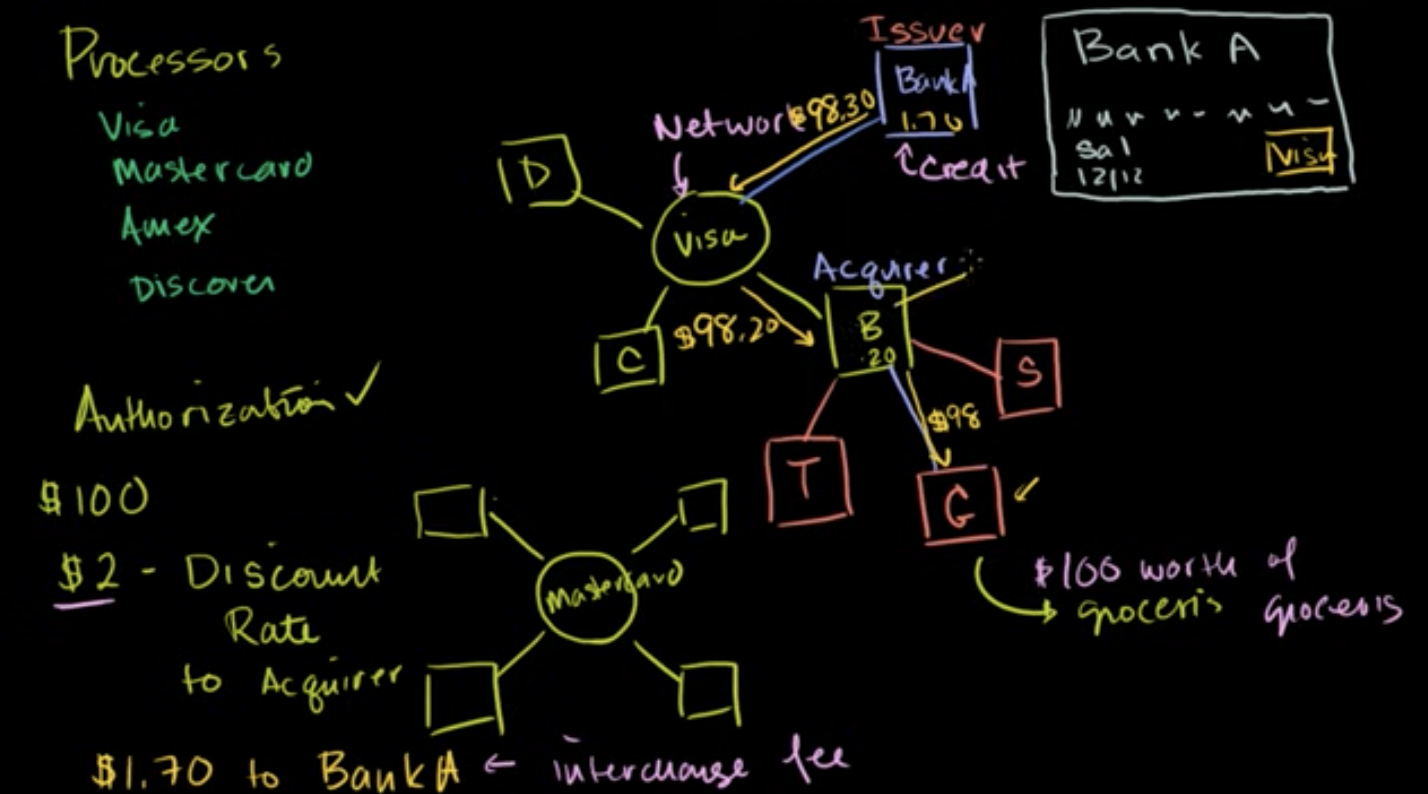 Processors
Visa
Mastercard
Amex
Discover
Authorization ✓
$100
$2 - Discount
Rate
to Acquirer
$1.70 to Bank A ← interchange fee
Issuer
Bank A
1.70
Credit
Network
$98.30
D
Visa
C
$98.20
Acquirer
B
.20
S
T
$98
G
$100 worth of
groceris groceris
Mastercard
Bank A
Sal
12/12
Visa